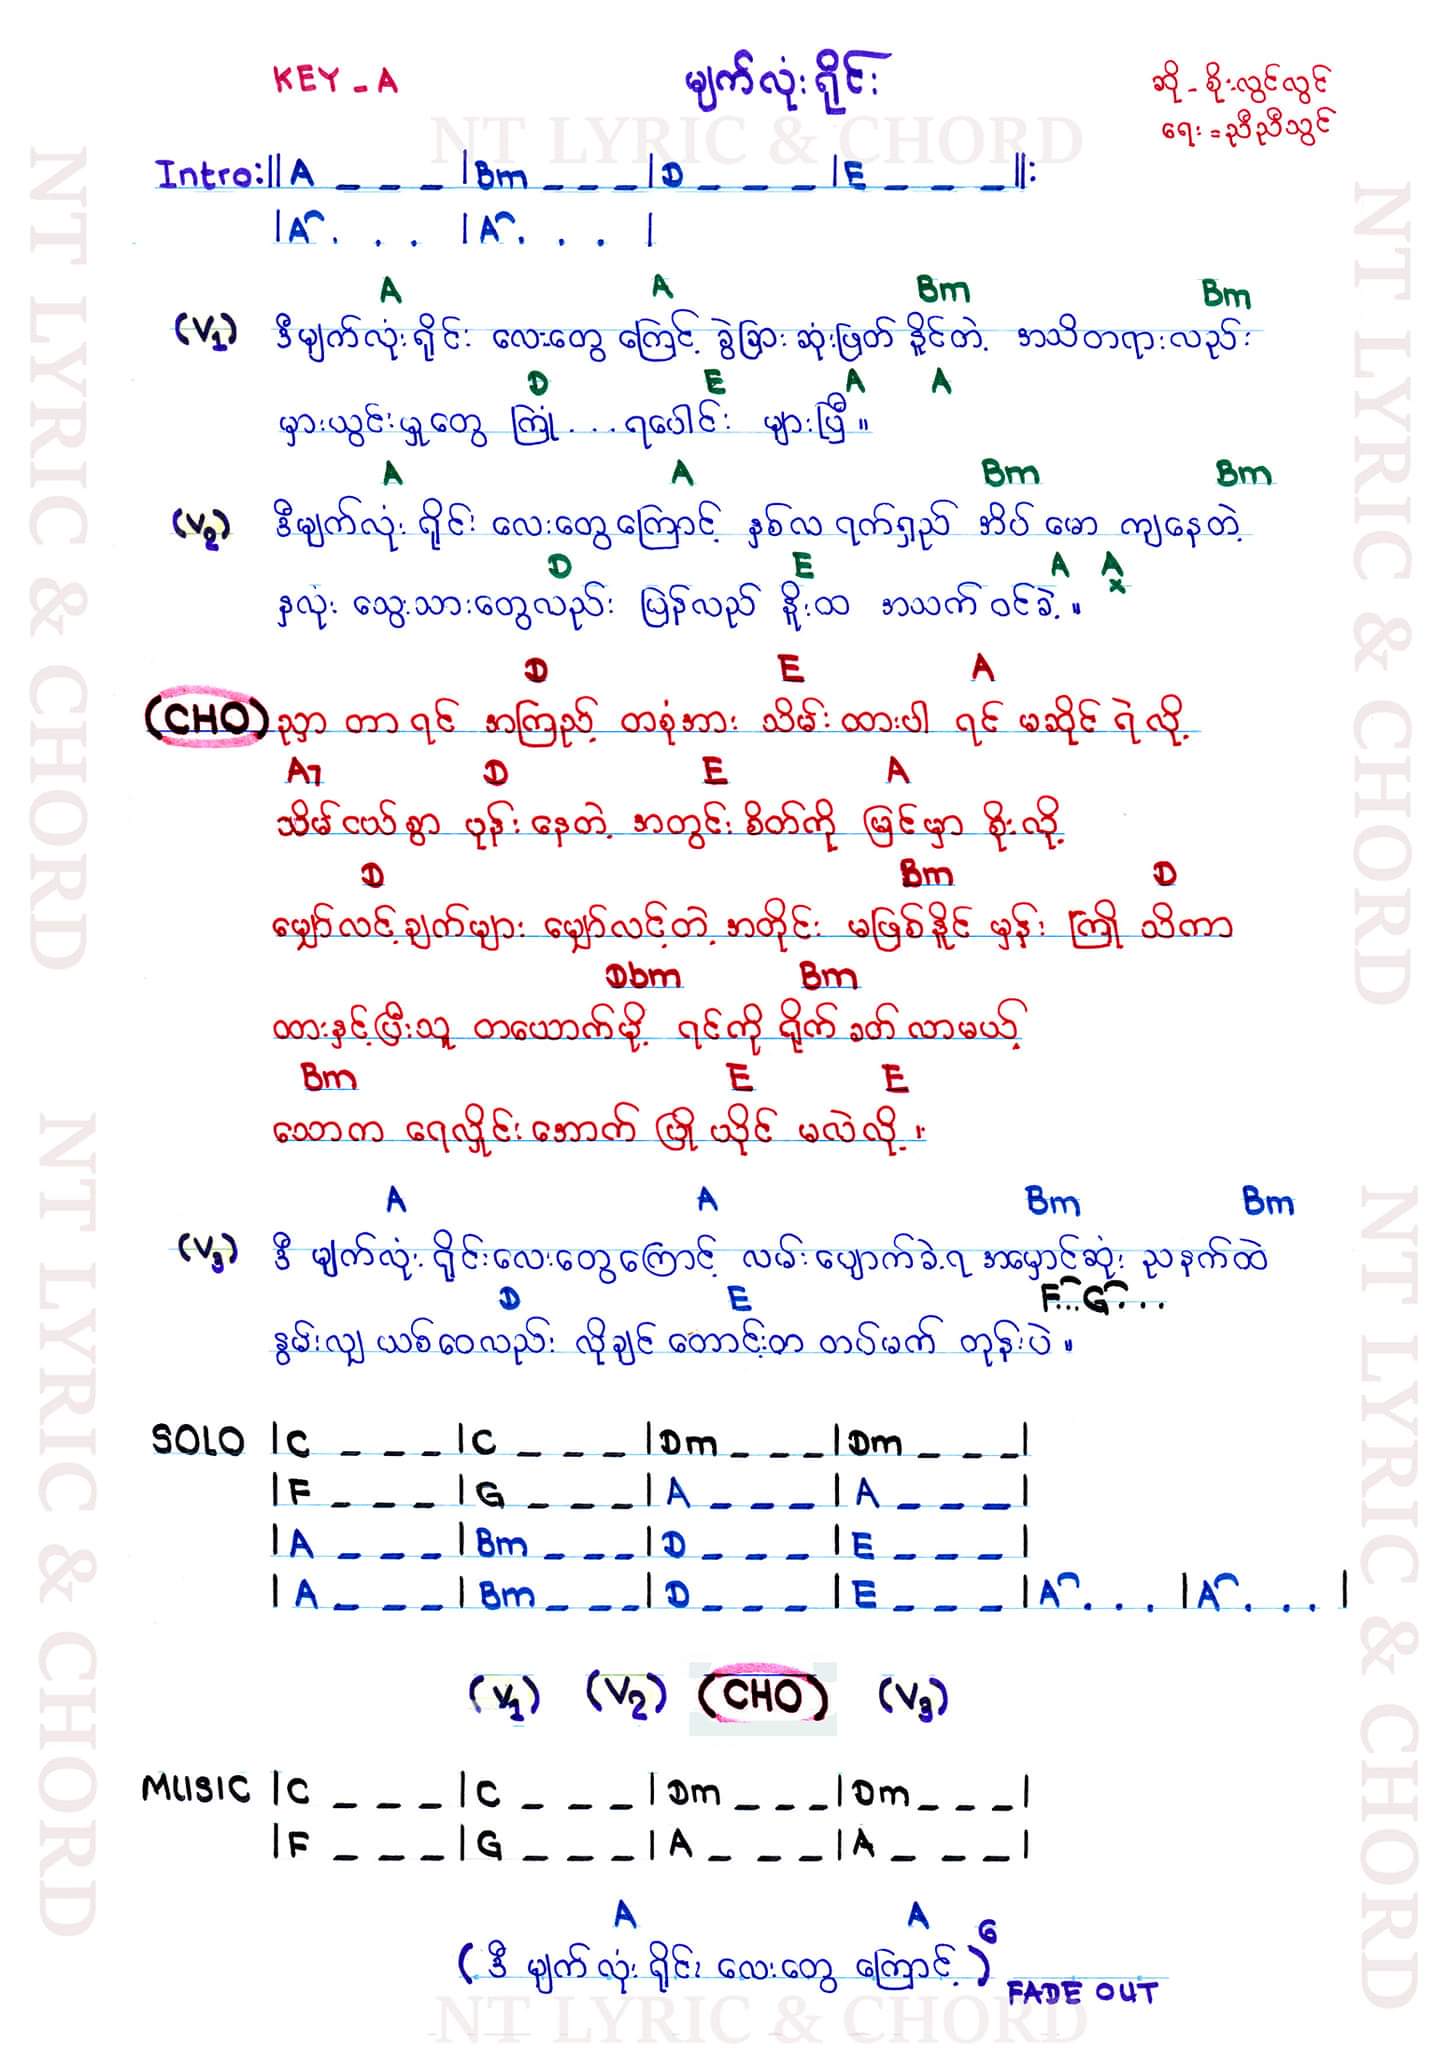 KEY - A
မျက်လုံးရိုင်း
ဆို - စိုးလွင်လွင်
ရေး = ညီညီသွင်
NT LYRIC & CHORD
Intro:|| A _ _ _ | Bm _ _ _ | D _ _ _ | E _ _ _ ||:
| A . . . | A . . . |
A A Bm Bm
(V1) ဒီမျက်လုံးရိုင်း လေးတွေ ကြောင့် ခွဲခြားဆုံးဖြတ် နိုင်တဲ့ အသိတရားလည်း
D E A A
မှားယွင်းမှုတွေ ကြုံ...ရပေါင်း များပြီ။
A A Bm Bm
(V2) ဒီမျက်လုံး ရိုင်း လေးတွေကြောင့် နှစ်လ ရက်ရှည် အိပ် မော ကျနေတဲ့
D E A A x
နှလုံး သွေးသားတွေလည်း ပြန်လည် နိုးထ အသက် ဝင်ခဲ့။
D E A
(CHO) ညှာ တာ ရင် အကြည့် တစုံအား သိမ်း ထားပါ ရင် မဆိုင် ရဲ လို့
A7 D E A
သိမ်ငယ်စွာ ပုန်း နေတဲ့ အတွင်း စိတ်ကို မြင်မှာ စိုးလို့
D Bm D
မျှော်လင့်ချက်များ မျှော်လင့်တဲ့ အတိုင်း မဖြစ်နိုင် မှန်း ကြို သိကာ
Dbm Bm
ထားနှင့်ပြီးသူ တယောက်မို့ ရင်ကို ရိုက် ခတ် လာမယ့်
Bm E E
သောက ရေလှိုင်းအောက် ပြို ယိုင် မလဲလို့။
A A Bm Bm
(V3) ဒီ မျက်လုံး ရိုင်းလေးတွေကြောင့် လမ်းပျောက်ခဲ့ရ အမှောင်ဆုံး ညနက်ထဲ
D E F...G...
နွမ်းလျှ ယစ်ဝေလည်း လိုချင် တောင့်တ တပ်မက် တုန်းပဲ။
SOLO | C _ _ _ | C _ _ _ | Dm _ _ _ | Dm _ _ _ |
| F _ _ _ | G _ _ _ | A _ _ _ | A _ _ _ |
| A _ _ _ | Bm _ _ _ | D _ _ _ | E _ _ _ |
| A _ _ _ | Bm _ _ _ | D _ _ _ | E _ _ _ | A . . . | A . . . |
(V1) (V2) (CHO) (V3)
MUSIC | C _ _ _ | C _ _ _ | Dm _ _ _ | Dm _ _ _ |
| F _ _ _ | G _ _ _ | A _ _ _ | A _ _ _ |
A A
(ဒီ မျက်လုံး ရိုင်း လေးတွေ ကြောင့်)6
FADE OUT
NT LYRIC & CHORD
NT LYRIC & CHORD
NT LYRIC & CHORD
NT LYRIC & CHORD
NT LYRIC & CHORD